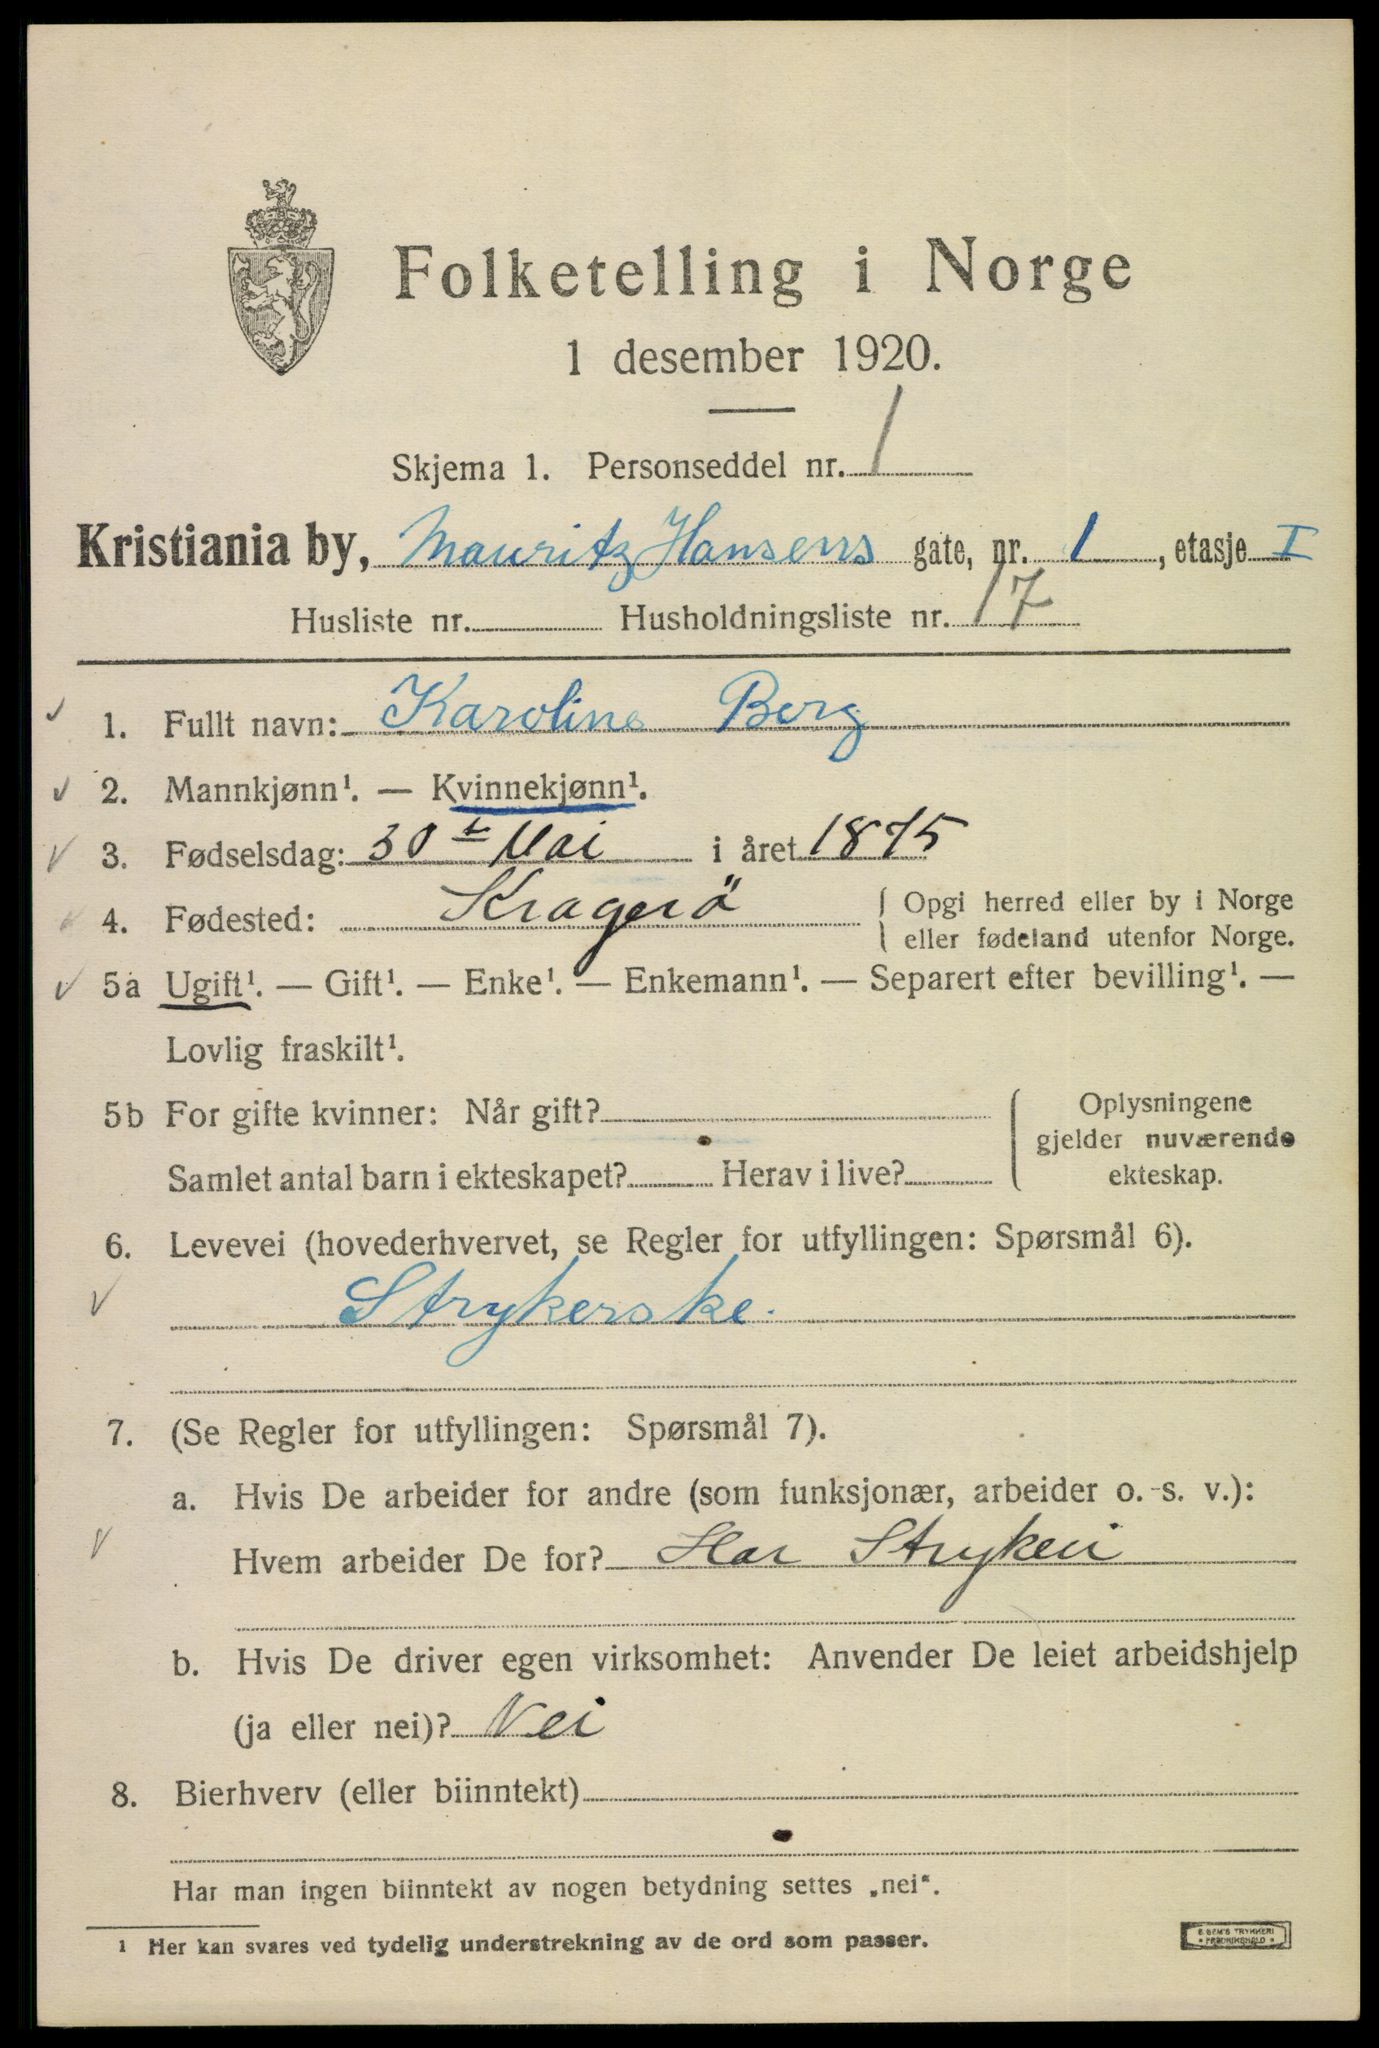 Folketelling i Norge
1 desember 1920.
Skjema 1. Personseddel nr. 1
Kristiania by, Mauritz Hansens gate, nr. 1, etasje I
Husliste nr. Husholdningsliste nr. 17
1. Fullt navn: Karoline Berg
2. Mannkjønn¹. — Kvinnekjønn¹.
3. Fødselsdag: 30te Mai i året 1875
4. Fødested: Kragerö { Opgi herred eller by i Norge
eller fødeland utenfor Norge.
5a Ugift¹. — Gift¹. — Enke¹. — Enkemann¹. — Separert efter bevilling¹. —
Lovlig fraskilt¹.
5b For gifte kvinner: Når gift? { Oplysningene
gjelder nuværende
Samlet antal barn i ekteskapet? Herav i live? ekteskap.
6. Levevei (hovederhvervet, se Regler for utfyllingen: Spørsmål 6).
Strykerske.
7. (Se Regler for utfyllingen: Spørsmål 7).
a. Hvis De arbeider for andre (som funksjonær, arbeider o. s. v.):
Hvem arbeider De for? Har Strykeri
b. Hvis De driver egen virksomhet: Anvender De leiet arbeidshjelp
(ja eller nei)? Nei
8. Bierhverv (eller biinntekt)
Har man ingen biinntekt av nogen betydning settes „nei“.
1 Her kan svares ved tydelig understrekning av de ord som passer.
E SEM'S TRYKKERI
FREDRIKSHALD